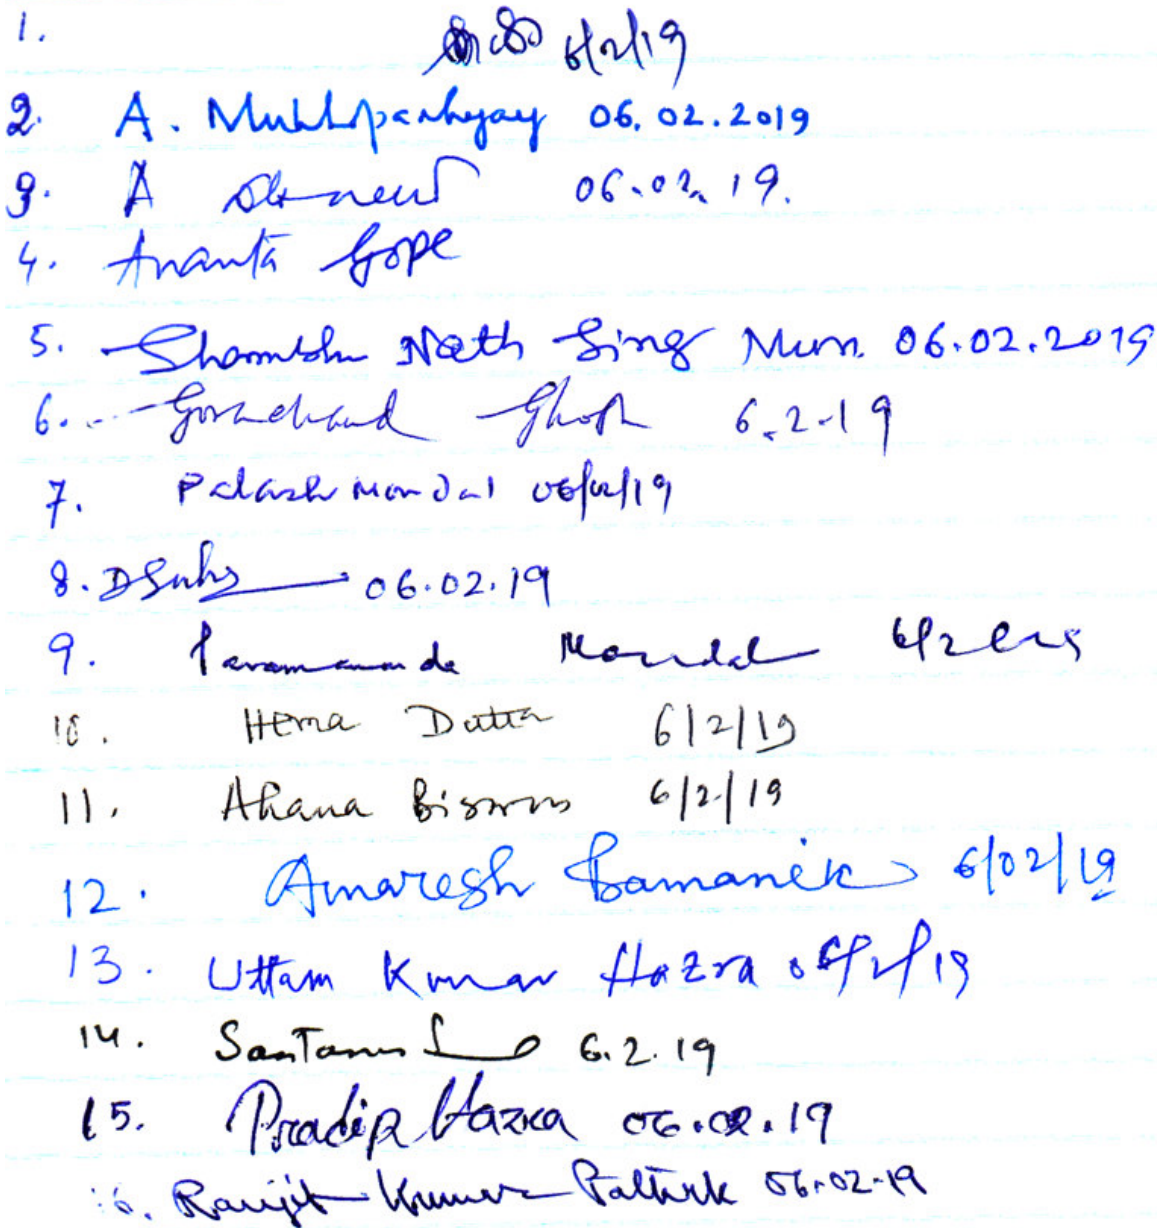 1. 6/2/19
2. A. Mukhopadhyay 06.02.2019
3. A 06.02.19.
4. Ananta Gope
5. Shambhu Nath Sing Mura 06.02.2019
6. Gorachand Ghosh 6.2.19
7. Palash Mondal 06/02/19
8. D Saha 06.02.19
9. Paramananda Mondal 6/2/19
10. Hema Dutta 6/2/19
11. Ahana Biswas 6/2/19
12. Amaresh Pamanik 6/02/19
13. Uttam Kumar Hazra 06/2/19
14. Santanu 6.2.19
15. Pradip Hazra 06.02.19
16. Ranjit Kumar 06.02.19